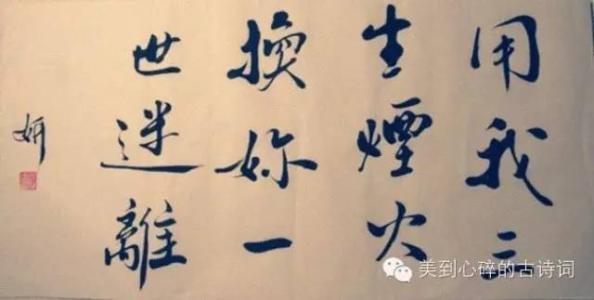 用我三
生煙火
換妳一
世迷離
妍
美到心碎的古诗词